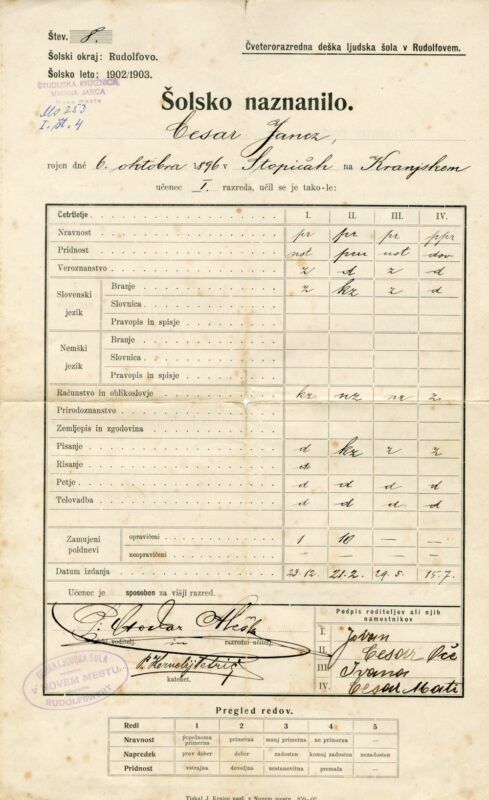 Štev. 8.
Šolski okraj: Rudolfovo.
Čveterorazredna deška ljudska šola v Rudolfovem.
Šolsko leto: 1902/1903.
ŠTUDIJSKA KNJIŽNICA
MIRANA JARCA
Novo mesto
Ms 253
I. št. 4
Šolsko naznanilo.
Cesar Janez,
rojen dné 6. oktobra 1896 v Stopičah na Kranjskem
učenec I. razreda, učil se je tako-le:
Četrtletje I. II. III. IV.
Nravnost pr pr pr ppr
Pridnost ust ust dov
Veroznanstvo z d z d
Slovenski jezik
Branje z kz z d
Slovnica
Pravopis in spisje
Nemški jezik
Branje
Slovnica
Pravopis in spisje
Računstvo in oblikoslovje kz nz nz z
Prirodoznanstvo
Zemljepis in zgodovina
Pisanje d kz z z
Risanje d
Petje d d d d
Telovadba d d d d
Zamujeni poldnevi
opravičeni 1 10 — —
neopravičeni — — — —
Datum izdanja 23.12. 21.2. 29.5. 15.7.
Učenec je sposoben za višji razred.
voditelj. in razredni učitelj.
P. Hugolin
katehet.
Podpis roditeljev ali njih
namestnikov
I. Jovan
II. Cesar Oče
III. Ivana
IV. Cesar Mati
LJUDSKA ŠOLA
V NOVEM MESTU
RUDOLFSWERT
Pregled redov.
Redi 1 2 3 4 5
Nravnost popolnoma primerna primerna manj primerna ne primerna
Napredek prav dober dober zadosten komaj zadosten nezadosten
Pridnost vstrajna dovoljna nestanovitna premala —
Tiskal J. Krajec nasl. v Novem mestu.